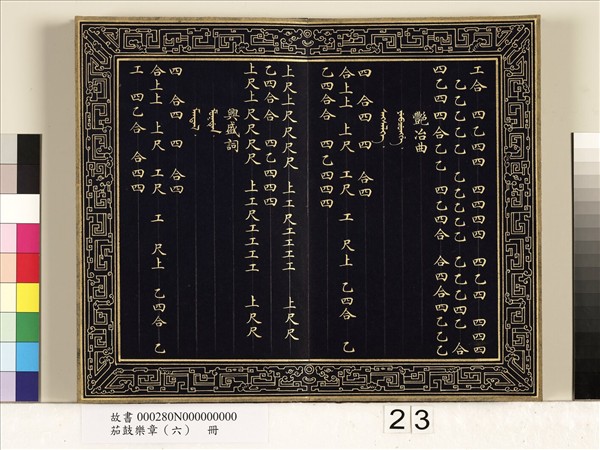 工合 四乙四四 四四四四 四乙四 四四四
乙乙乙乙乙 乙乙乙乙 乙乙四乙 合
四乙四四合乙乙 四乙四合 合四合四乙乙乙
豔冶曲
四 合四 四 合四
合上上 上尺 工尺 工 尺上 乙四合 乙
乙四合合 四乙四四四
上尺上尺尺尺尺 上工尺工工工工 上尺尺
乙四合合 四乙四四四
上尺上尺尺尺尺 上工尺工工工工 上尺尺
興盛詞
四 合四 四 合四
合上上 上尺 工尺 工 尺上 乙四合 乙
工 四乙合 合四四
故書 000280N000000000
笳鼓樂章（六） 冊
23